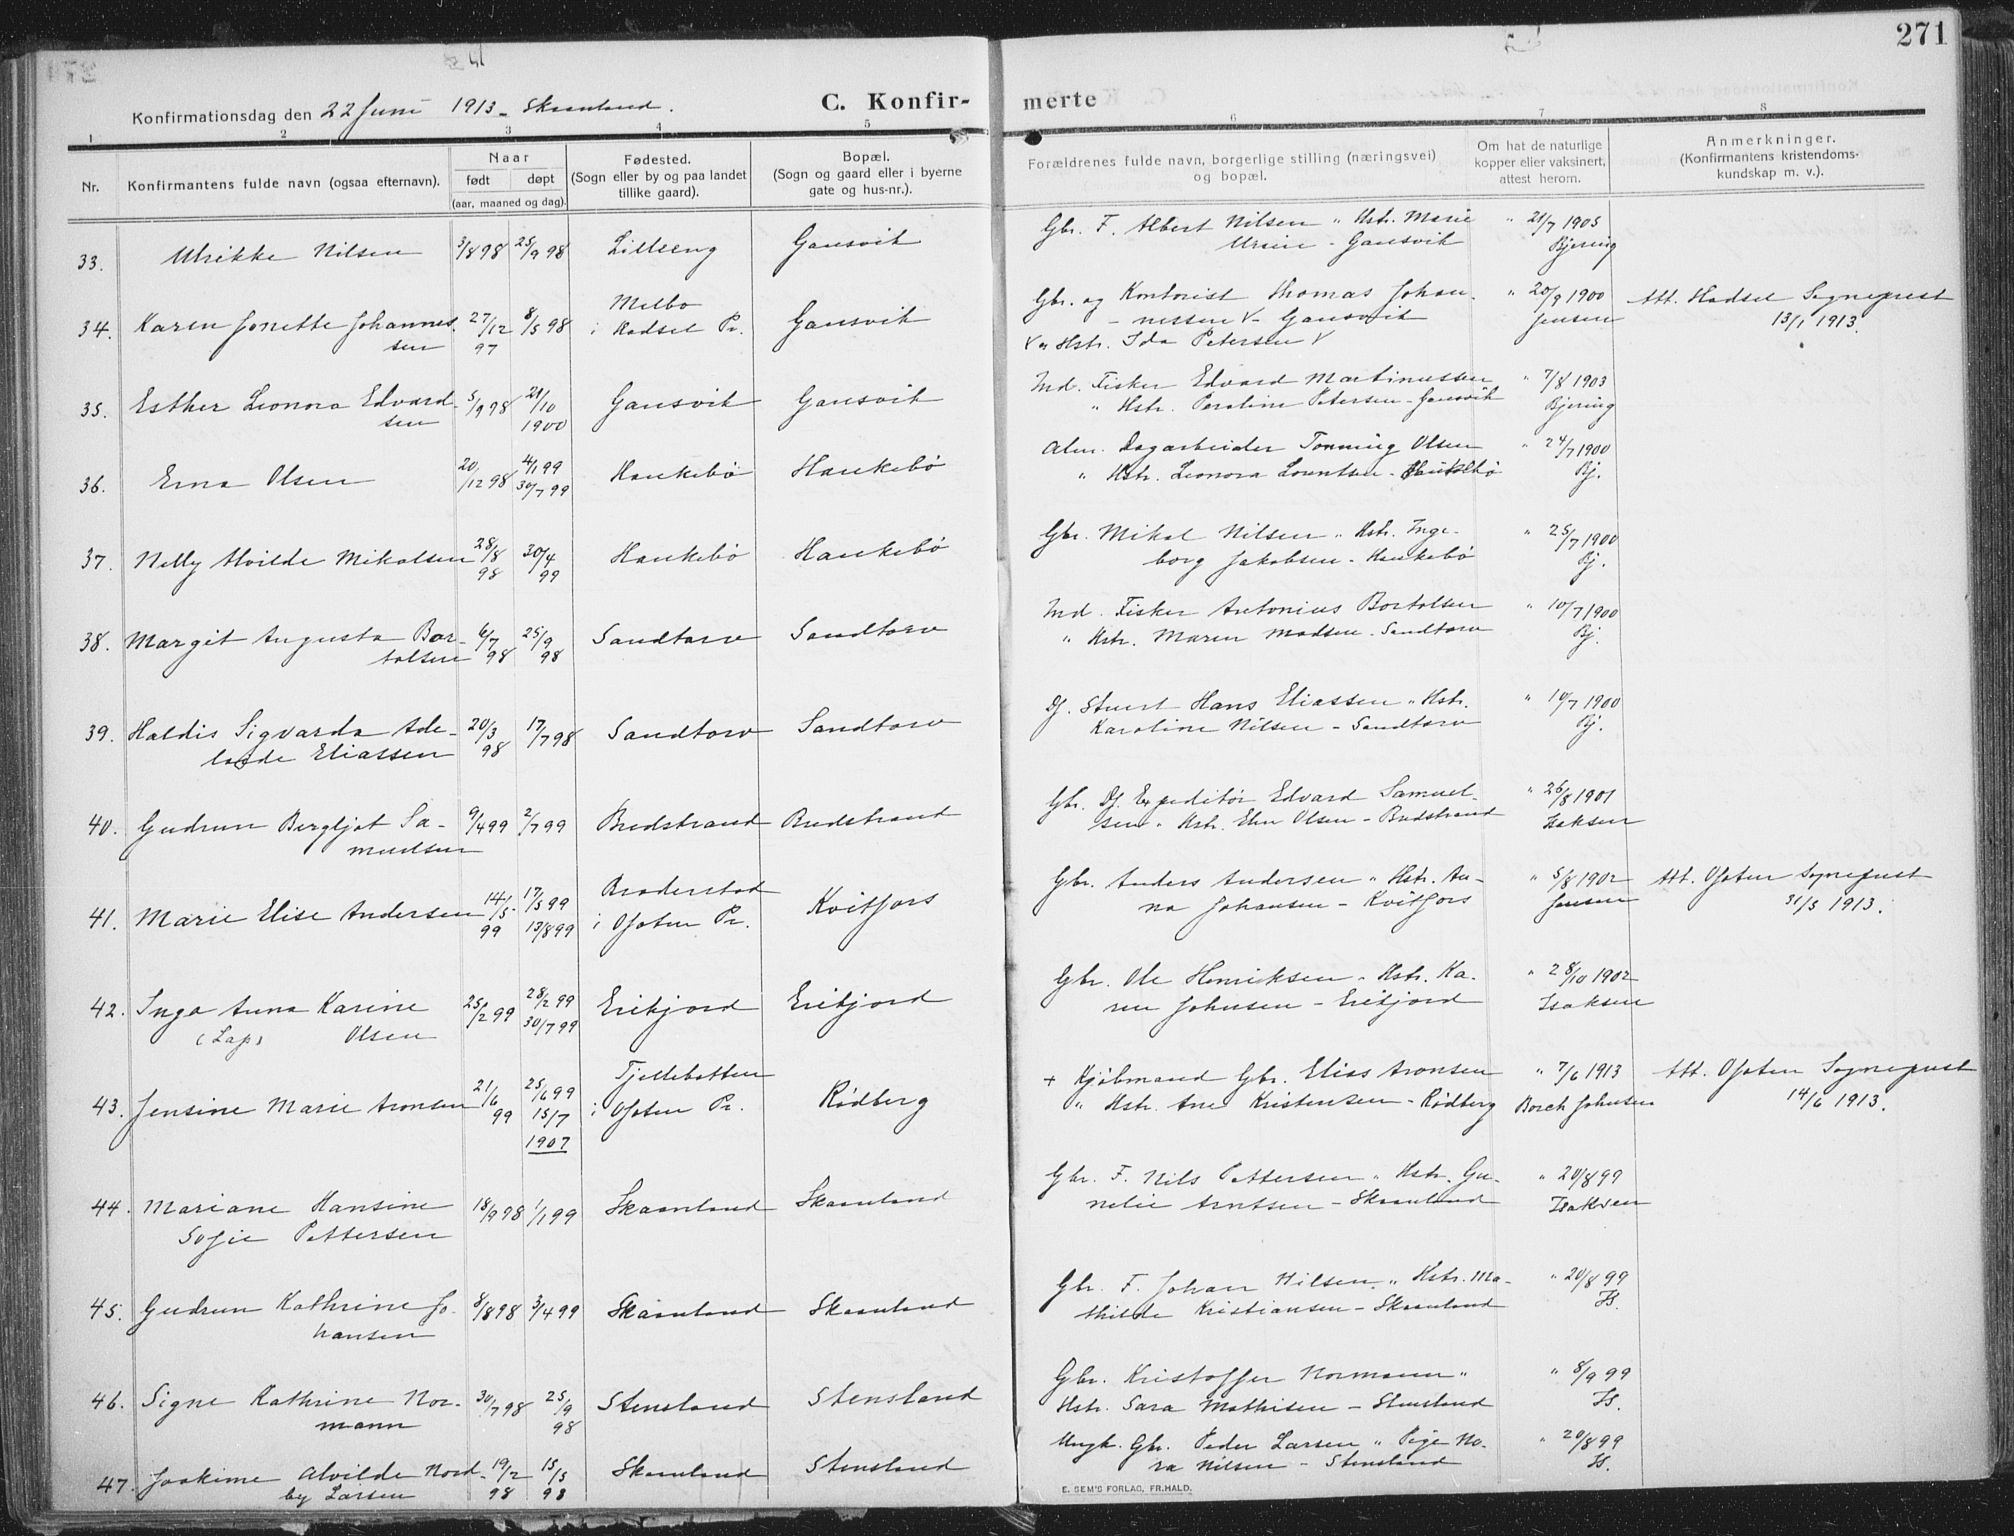 271
Konfirmationsdag den 22 Juni 1913 - Skaanland.
C. Konfir-
merte
1 2 3 4 5 6 7 8
Nr.
Konfirmantens fulde navn (ogsaa efternavn).
Naar
født døpt
(aar, maaned og dag).
Fødested.
(Sogn eller by og paa landet
tillike gaard).
Bopæl.
(Sogn og gaard eller i byerne
gate og hus-nr.).
Forældrenes fulde navn, borgerlige stilling (næringsvei)
og bopæl.
Om hat de naturlige
kopper eller vaksinert,
attest herom.
Anmerkninger.
(Konfirmantens kristendoms-
kundskap m. v.).
33. Ulrikke Nilsen 3/8 98 25/9 98 Lilleeng Gausvik
Gbr. F. Albert Nilsen " Hstr. Marie
Ursin - Gausvik
" 21/7 1905
Bjering
34. Karen Jonette Johannes-
sen
27/12 97 8/5 98
Melbo
i Hadsel Pr.
Gausvik
Gbr. og Kontorist Thomas Johan-
- nessen V - Gausvik
V " Hstr. Ida Petersen V
" 20/9 1900
Jensen
Att. Hadsel Sogneprest
13/1 1913.
35. Esther Leonora Edvard-
sen
5/9 98 21/10 1900
Gausvik Gausvik
Ind. Fisker Edvard Martinussen
" Hstr. Peroline Petersen - Gausvik
" 7/8 1903
Bjering
36. Erna Olsen 20/12 98 4/1 99
30/7 99
Haukebø Haukebø
Alm. Dagarbeider Tonning Olsen
" Hstr. Leonora Lorntsen - Haukebø
" 24/7 1900
Bj.
37. Nelly Alvilde Mikalsen 28/8 98 30/4 99 Haukebø Haukebø
Gbr. Mikal Nilsen " Hstr. Inge-
borg Jakobsen - Haukebø
" 25/7 1900
Bj.
38. Margit Augusta Bor-
tolsen
6/7 98 25/9 98
Sandtorv Sandtorv
Ind. Fisker Antonius Bortolsen
" Hstr. Maren Madsen - Sandtorv
" 10/7 1900
Bj.
39. Haldis Sigvarda Ade-
laide Eliassen
20/3 98 17/7 98
Sandtorv Sandtorv
Df. Stuert Hans Eliassen " Hstr.
Karoline Nilsen - Sandtorv
" 10/7 1900
Bj.
40. Gudrun Bergljot Sa-
muelsen
9/4 99 2/7 99
Brudstrand Brudstrand
Gbr. Df. Expeditør Edvard Samuel-
sen " Hstr. Elen Olsen - Brudstrand
" 26/8 1901
Isaksen
41. Marie Elise Andersen 14/5 99 17/5 99
13/8 99
Braderstad
i Ofoten Pr.
Kvitfors
Gbr. Anders Andersen " Hstr. An-
na Johansen - Kvitfors
" 5/8 1902
Jensen
Att. Ofoten Sogneprest
31/5 1913.
42. Inga Anna Karine
(Lap) Olsen
25/2 99 28/2 99
30/7 99
Erikjord Erikjord
Gbr. Ole Henriksen " Hstr. Ka-
ren Johnsen - Erikjord
" 28/10 1902
Isaksen
43. Jensine Marie Aronsen 21/6 99 25/6 99
15/7
1907
Tjellebotten
i Ofoten Pr.
Rødberg
+ Kjøbmand Gbr. Elias Aronsen
" Hstr. Ane Kristensen - Rødberg
" 7/6 1913
Borch Johnsen
Att. Ofoten Sogneprest
14/6 1913.
44. Mariane Hansine
Sofie Pettersen
18/9 98 1/1 99
Skaanland Skaanland
Gbr. F. Nils Pettersen " Hstr. Gu-
nelie Arntsen - Skaanland
" 20/8 99
Isaksen
45. Gudrun Kathrine Jo-
hansen
8/8 98 3/4 99
Skaanland Skaanland
Gbr. F. Johan Nilsen " Hstr. Ma-
thilde Kristiansen - Skaanland
" 20/8 99
Is.
46. Signe Kathrine Nor-
mann
30/7 98 25/9 98
Stensland Stensland
Gbr. Kristoffer Normann "
Hstr. Sara Mathisen - Stensland
" 8/9 99
Is.
47. Joakime Alvilde Nord-
by Larsen
19/2 98 15/5 98
Skaanland Stensland
Ungk. Gbr. Peder Larsen " Pige No-
ra Nilsen - Stensland
" 20/8 99
Is.
E. SEM'S FORLAG, FR.HALD.